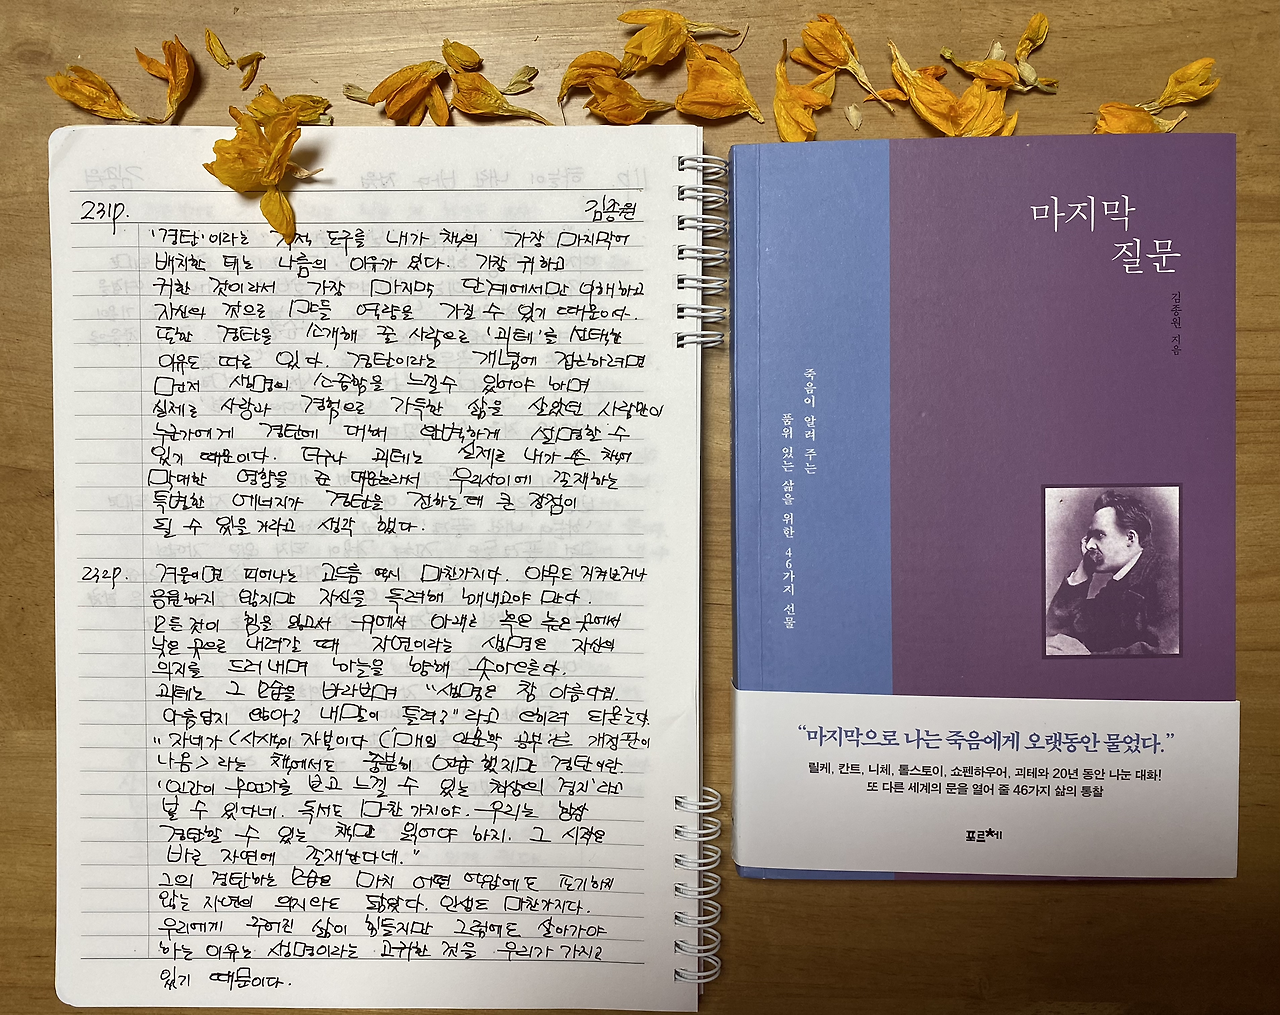 231p. 김종원
'경탄'이라는 도구를 내가 책의 가장 마지막에
배치한 데는 나름의 이유가 있다. 가장 귀하고
귀한 것이라서 가장 마지막 단계에서만 이해하고
자신의 것으로 만들 역량을 가질 수 있기 때문이다.
또한 경탄을 소개해 줄 사람으로 '괴테'를 선택한
이유도 따로 있다. 경탄이라는 개념에 접근하려면
먼저 생명의 소중함을 느낄 수 있어야 하며
실제로 사랑과 경험으로 가득한 삶을 살았던 사람만이
누군가에게 경탄에 대해 완벽하게 설명할 수
있기 때문이다. 더구나 괴테는 실제로 내가 쓴 책에
막대한 영향을 준 우리사이에 존재하는
특별한 에너지가 경탄을 전하는데 큰 장점이
될 수 있을 거라고 생각 했다.
232p. 겨울이면 피어나는 고드름 역시 마찬가지다. 아무도 지켜보거나
응원하지 않지만 자신을 독려해 해내고야 만다.
모든 것이 힘을 잃고서 위에서 아래로 혹은 높은 곳에서
낮은 곳으로 내려갈 때 자연이라는 생명은 자신의
의지를 드러내며 하늘을 향해 솟아오른다.
괴테는 그 모습을 바라보며 "생명은 참 아름다워.
아름답지 않아? 내 말이 들려?" 라고
" 자네가 <사색이 자본이다 (매일 인문학 공부 개정판이
나옴> 라는 책에서도 충분히 했지만 경탄이란.
'인간이 무언가를 보고 느낄 수 있는 최상의 경지'라고
볼 수 있다네. 독서도 마찬가지야. 우리는 항상
경탄할 수 있는 책만 읽어야 하지. 그 시작은
바로 자연에 존재한다네."
그의 경탄하는 모습은 마치 어떤 억압에도 포기하지
않는 자연의 의지와도 닮았다. 인생도 마찬가지다.
우리에게 주어진 삶이 힘들지만 그럼에도 살아가야
하는 이유는 생명이라는 고귀한 것을 우리가 가지고
있기 때문이다.
마지막
질문
김종원 지음
죽음이 알려 주는
품위 있는 삶을 위한 46가지 선물
"마지막으로 나는 죽음에게 오랫동안 물었다."
릴케, 칸트, 니체, 톨스토이, 쇼펜하우어, 괴테와 20년 동안 나눈 대화!
또 다른 세계의 문을 열어 줄 46가지 삶의 통찰
포르체